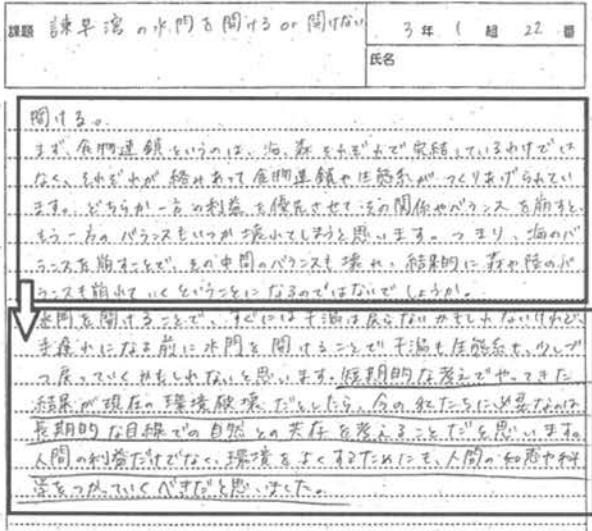 課題 諫早湾の水門を開ける or 開けない
3年 1組 22番
氏名
開ける。
まず、食物連鎖というのは、海、森それぞれで完結しているわけでは
なく、それぞれが絡みあって食物連鎖や生態系がつくりあげられてい
ます。どちらか一方の利益を優先させてその関係やバランスを崩すと、
もう一方のバランスもいつか壊れてしまうと思います。つまり、海のバ
ランスを崩すことで、その中間のバランスも壊れ、結果的に森や陸のバ
ランスも崩れていくということになるのではないでしょうか。
水門を開けることで、すぐには干潟は戻らないかもしれないけれど、
手遅れになる前に水門を開けることで干潟も生態系も、少しず
つ戻っていくかもしれないと思います。短期的な考えでやってきた
結果が現在の環境破壊だとしたら、今の私たちに必要なのは
長期的な目線での自然との共存を考えることだと思います。
人間の利益だけでなく、環境をよくするためにも、人間の知恵や科
学をつかっていくべきだと思いました。